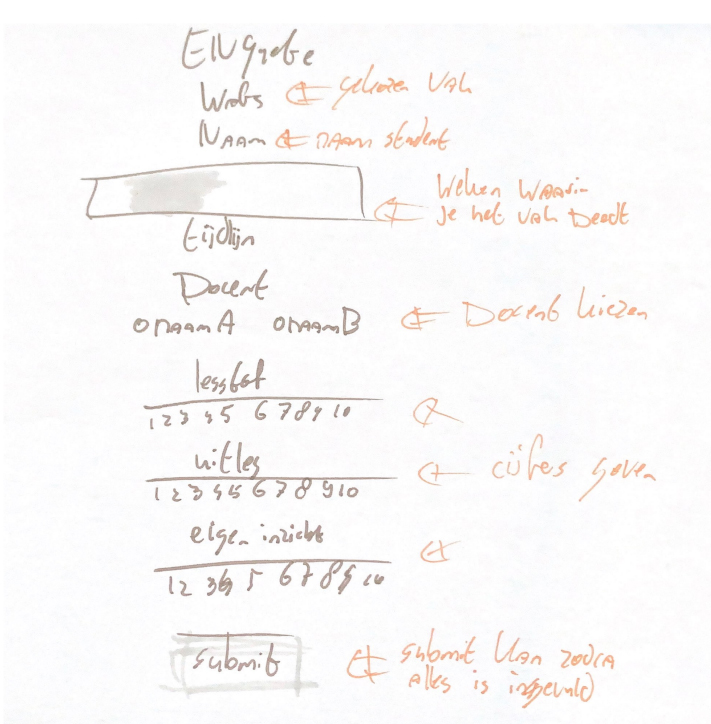 Webs gekozen vak
Naam naam student
Weken waarin
je het vak deedt
tijdlijn
Docent
O naam A O naam B Docent kiezen
lesstof
1 2 3 4 5 6 7 8 9 10
uitleg cijfers geven
1 2 3 4 5 6 7 8 9 10
eigen inzicht
1 2 3 4 5 6 7 8 9 10
submit submit kan zodra
alles is ingevuld